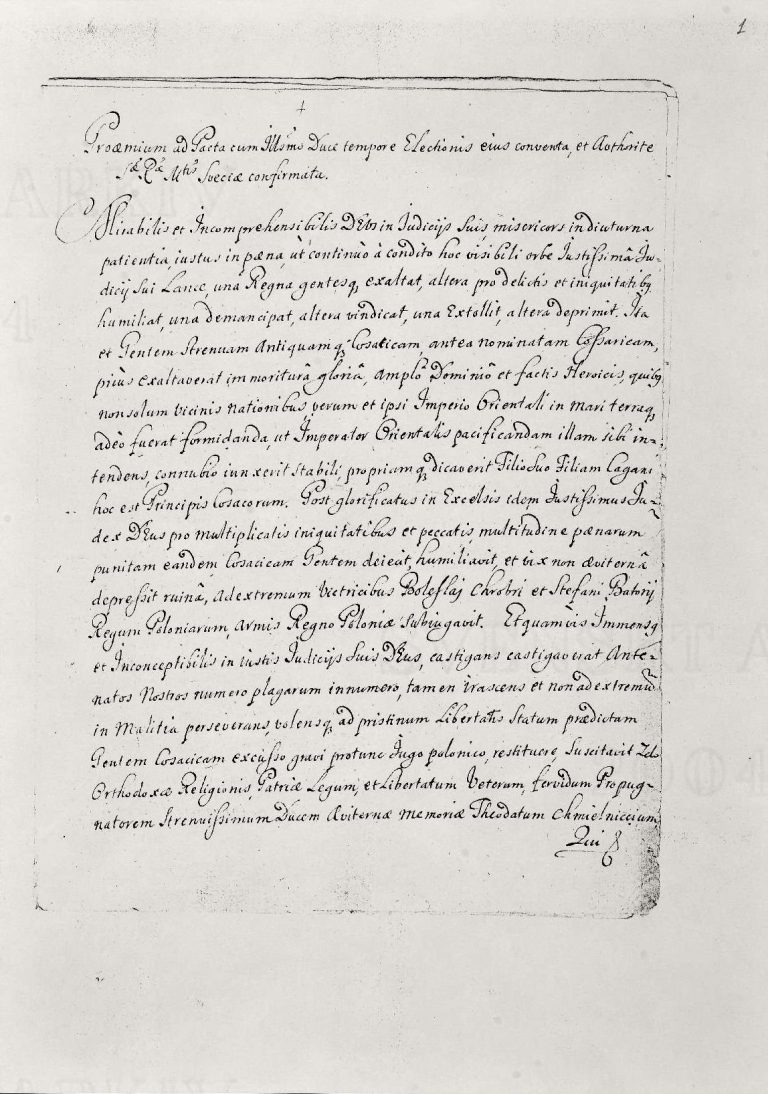 1
Proæmium ad Pacta cum Illsmo Duce tempore Electionis eius conventa, et Авthorite
Sæ Ræ Mtis Sveciæ confirmata.
Mirabilis et Incomprehensibilis DEus in Iudicijs suis, misericors in diuturna
patientia, iustus in pœna, ùt continuò à condito hoc visibili orbe Iustissimâ Iu-
dicij sui Lance, una Regna gentesq, exaltat, altera pro delictis et iniquitatibq
humiliat, una demancipat, altera vindicat, una Extollit, altera deprimit. Ita
et Gentem Strenuam Antiquamq, Cosacicam, antea nominatam Cossaricam,
priùs exaltaverat immoriturâ gloriâ, Amplô Dominiô et factis Heroicis, quibq
non solum vicinis nationibus, verum et ipsi Imperio Orientali in mari terraq,
adeò fuerat formidanda, ut Imperator Orientalis pacificandam illam sibi in-
tendens, connubio iunxerit stabili, propriamq, dicaverit Filio suo Filiam Cagani
hoc est Principis Cosacorum. Post glorificatus in Excelsis idem Iustissimus Iu-
dex DEus pro multiplicatis iniquitatibus et peccatis, multitudine pœnarum
punitam eandem Cosacicam Gentem deiecit, humiliavit, et vix non æviternâ
depressit ruinâ, Ad extremum Victricibus Boleslaj Chrobri et Stefani Batorij
Regum Poloniarum, armis Regno Poloniæ subiugavit. Et quamvis Immensq
et Inconceptibilis in iustis Iudicijs suis DEus, castigans castigaverat Ante-
natos Nostros numero plagarum innumero, tamen irascens et non ad extremũ
in Malitia perseverans, volensq, ad pristinum Libertatis Statum prædictam
Gentem Cosacicam excusso gravi protunc Iugo polonico, restituere, suscitavit Zelo
Orthodoxæ Religionis, Patriæ Legum, et Libertatum Veterum, fervidum Propug-
natorem Strenuissimum Ducem Æviternæ memoriæ Theodatum Chmielniccium
Qui